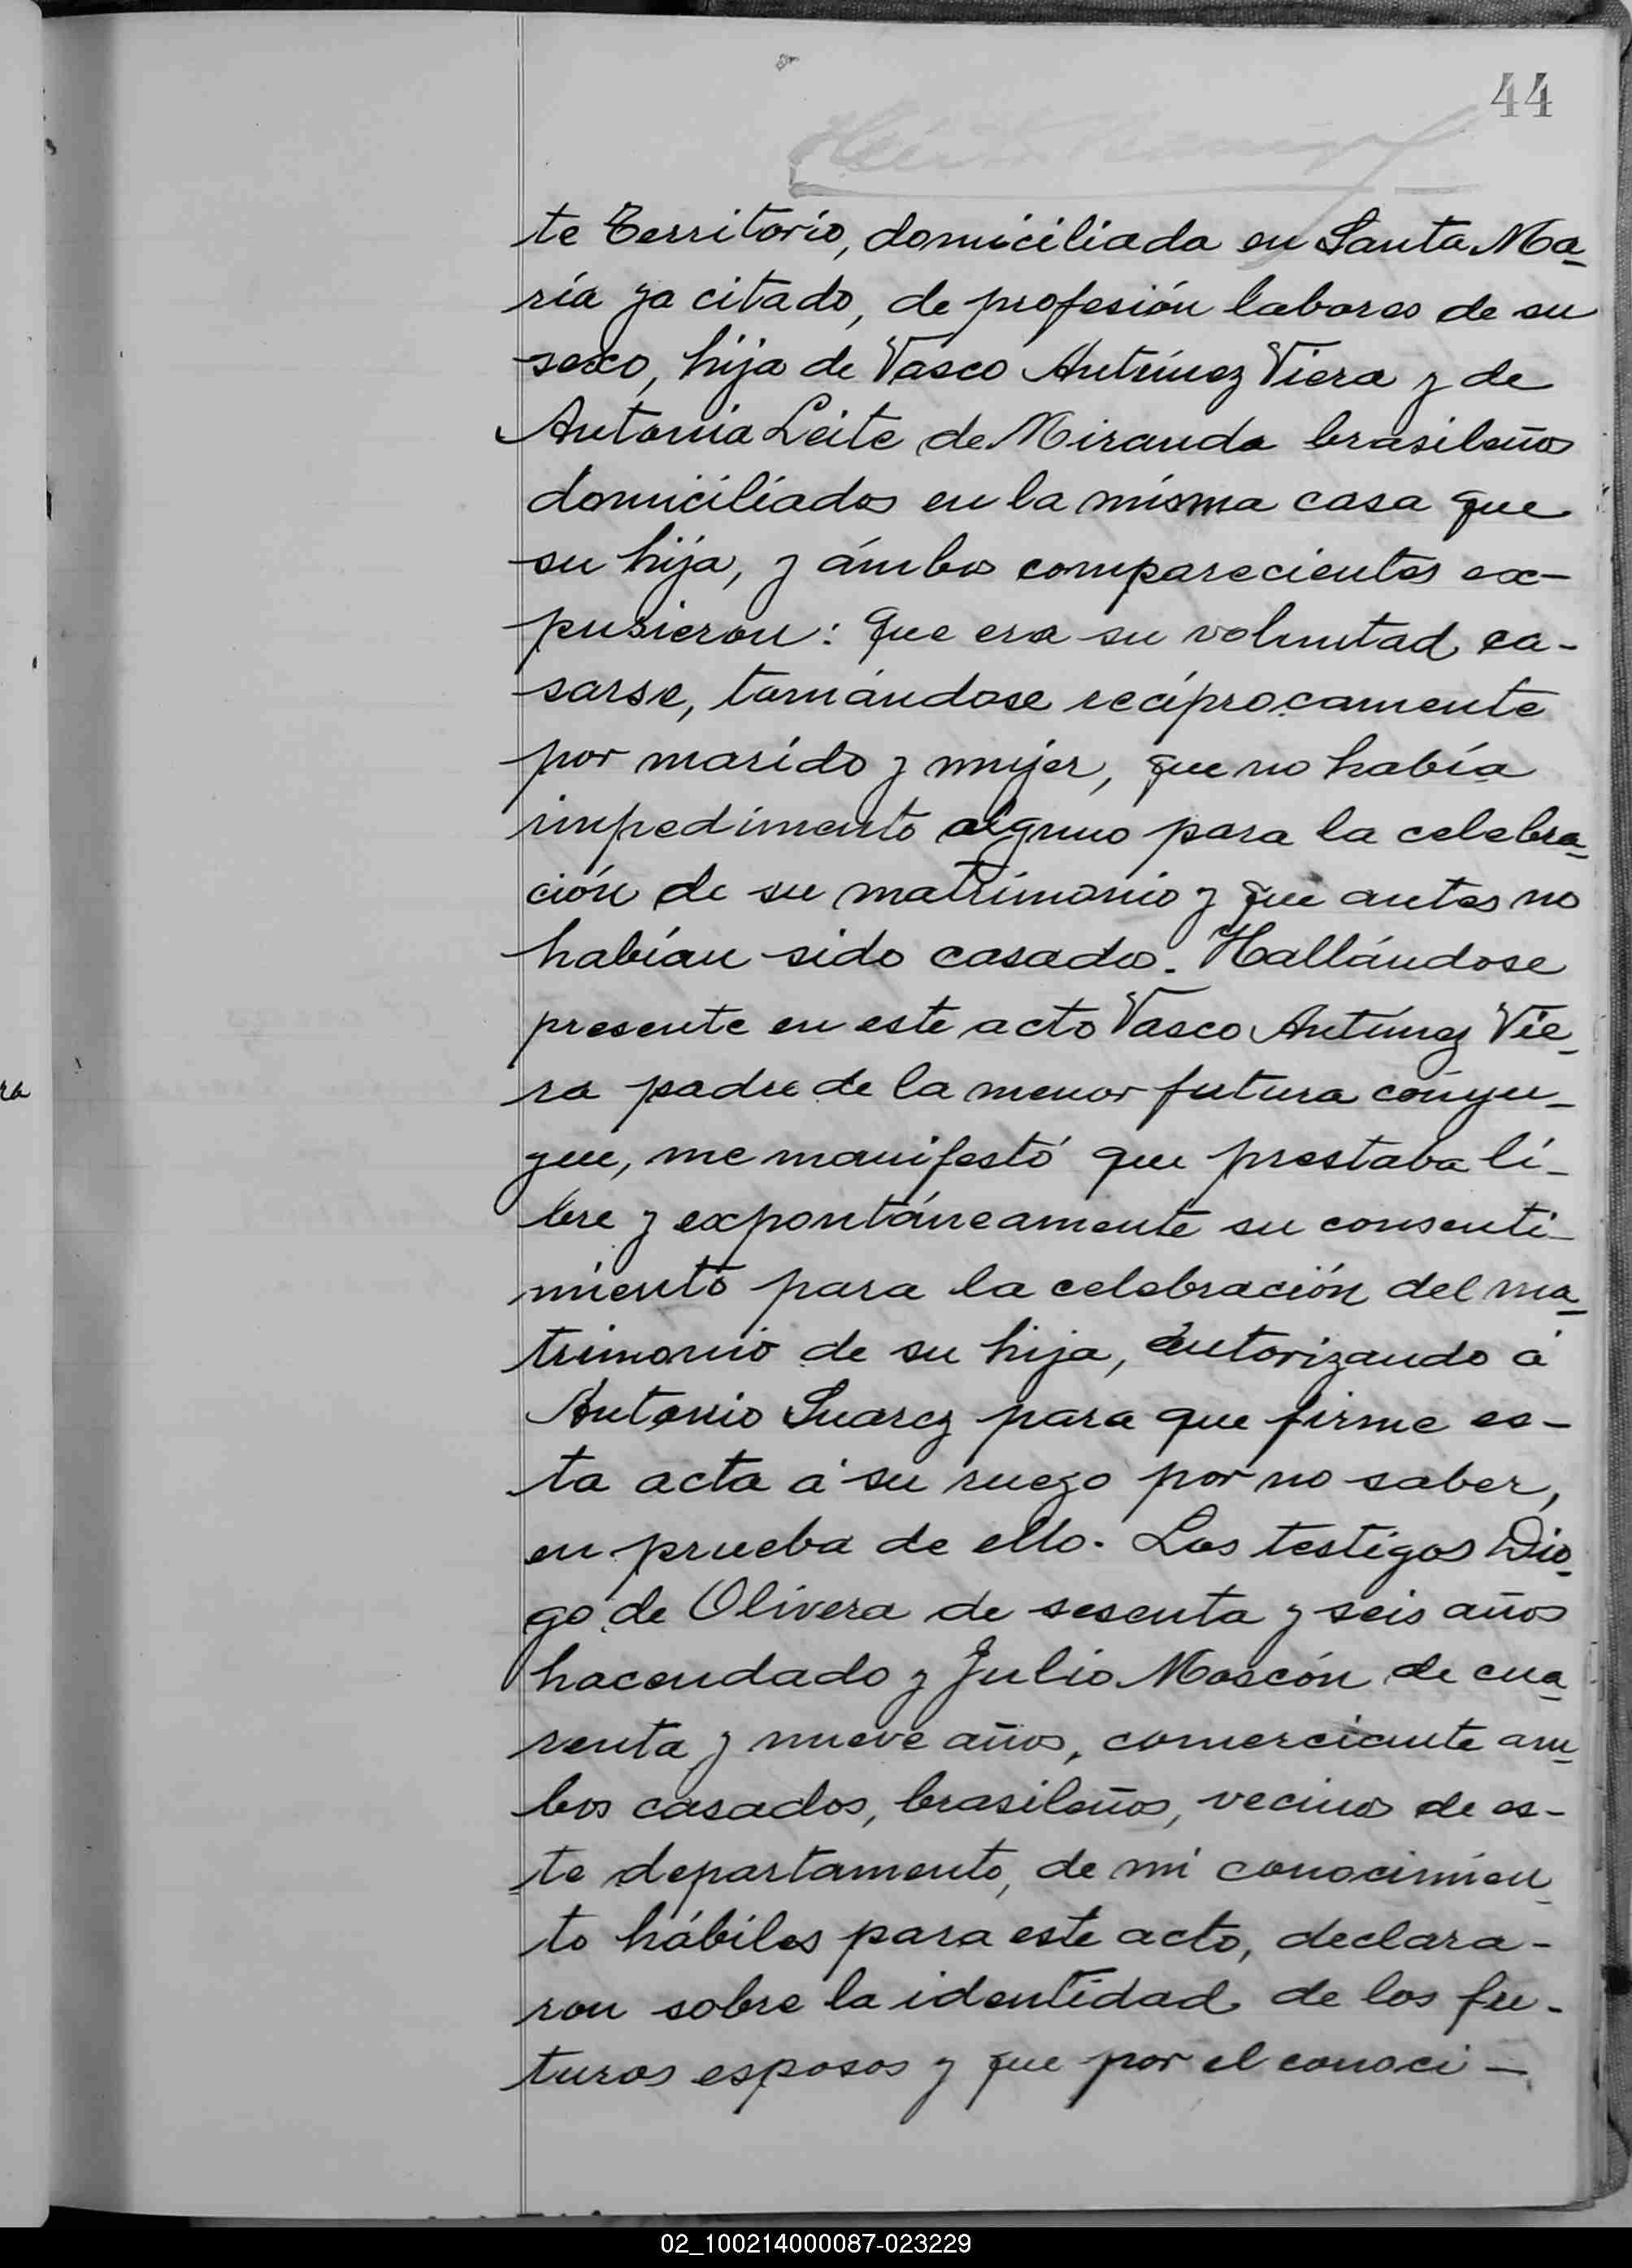 44
te Territorio, domiciliada en Santa Ma-
ría ya citado, de profesión labores de su
sexo, hija de Vasco Antúnez Viera y de
Antonia Leite de Miranda brasileños
domiciliados en la misma casa que
su hija, y ámbos comparecientes ex-
pusieron: Que era su voluntad ca-
sarse, tomándose recíprocamente
por marido y mujer, que no había
impedimento alguno para la celebra-
ción de su matrimonio y que antes no
habían sido casados. Hallándose
presente en este acto Vasco Antúnez Vie-
ra padre de la menor futura cónyu-
gue, me manifestó que prestaba li-
bre y expontáneamente su consenti-
miento para la celebración del ma-
trimonio de su hija, autorizando á
Antonio Suarez para que firme es-
ta acta á su ruego por no saber,
en prueba de ello. Los testigos Dio-
go de Olivera de sesenta y seis años
hacendado y Julio Moscón de cua-
renta y nueve años, comerciante am-
bos casados, brasileños, vecinos de es-
te departamento, de mi conocimien-
to hábiles para este acto, declara-
ron sobre la identidad de los fu-
turos esposos y que por el conoci-
ra
02_100214000087-023229